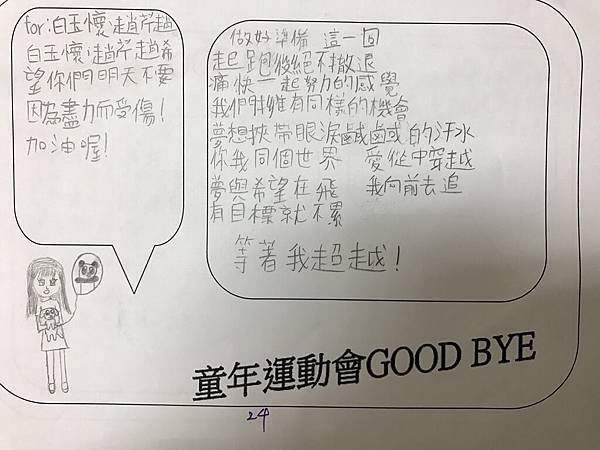 for:白玉懷、趙芹趙
白玉懷、趙芹趙希
望你們明天不要
因為盡力而受傷!
加油喔!
做好準備 這一回
起跑後絕不撤退
痛快一起努力的感覺
我們擁有同樣的機會
夢想挾帶眼淚鹹鹹的汗水
你我同個世界 愛從中穿越
夢與希望在飛 我向前去追
有目標就不累
等著我超越!
童年運動會GOOD BYE
24